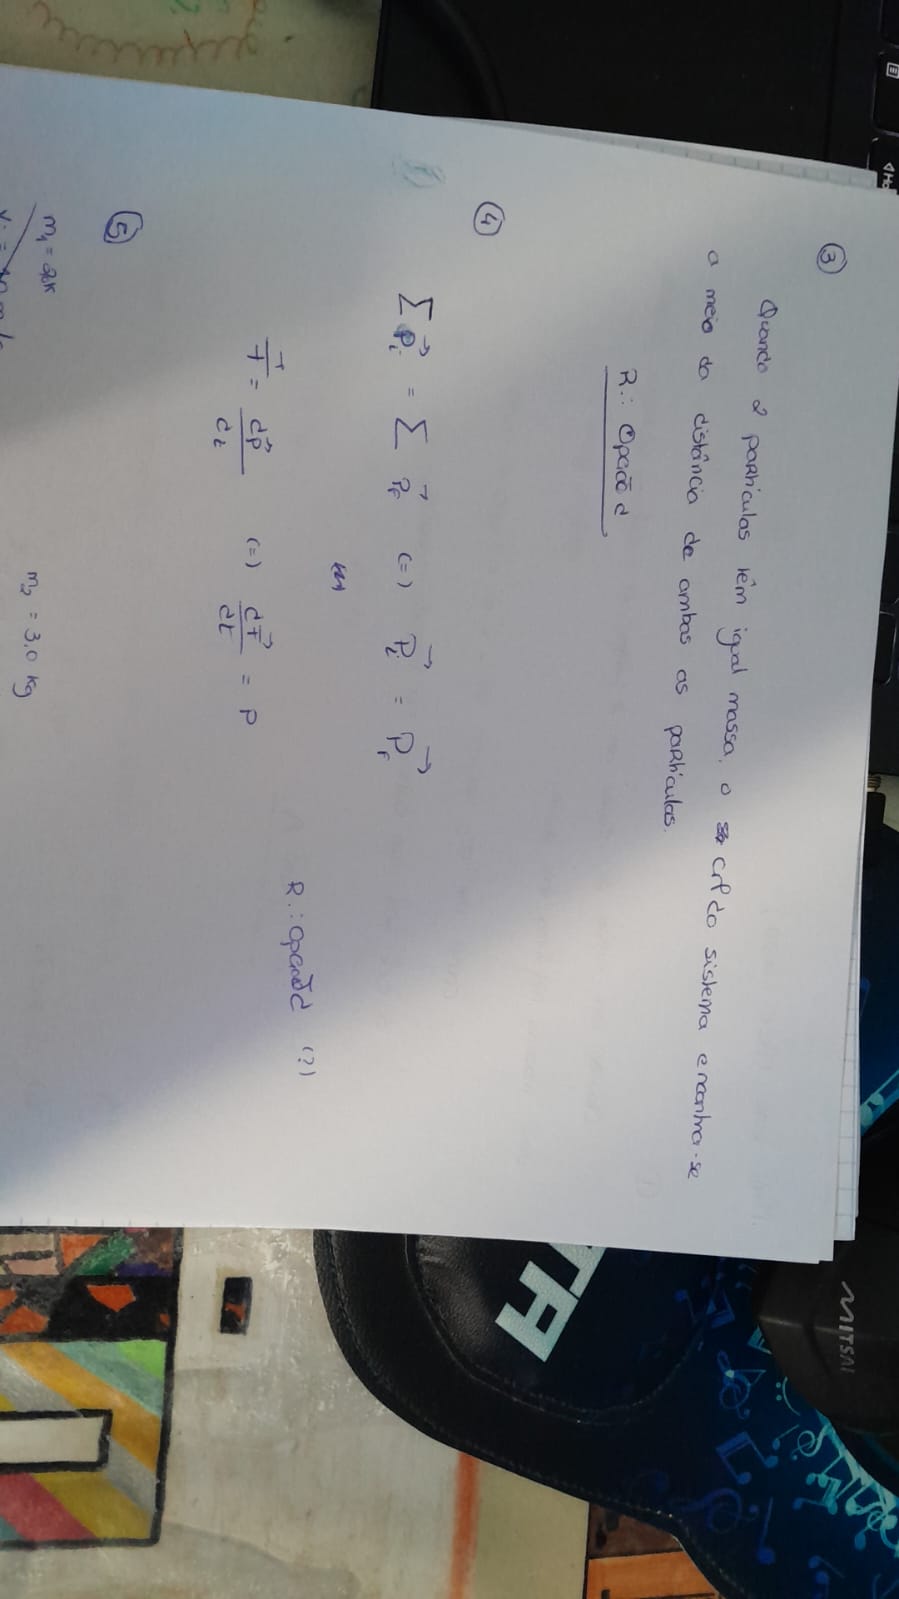 ③
Quando 2 partículas têm igual massa, o CM do sistema encontra-se
a meio da distância de ambas as partículas.
R.: Opção d
④
Σ p⃗ᵢ = Σ p⃗f (=) P⃗ᵢ = P⃗f
F⃗ = dp⃗/dt (=) dF⃗/dt = P
R.: opção d (?)
⑤
m₁ =
m₂ = 3,0 kg
MITSAI